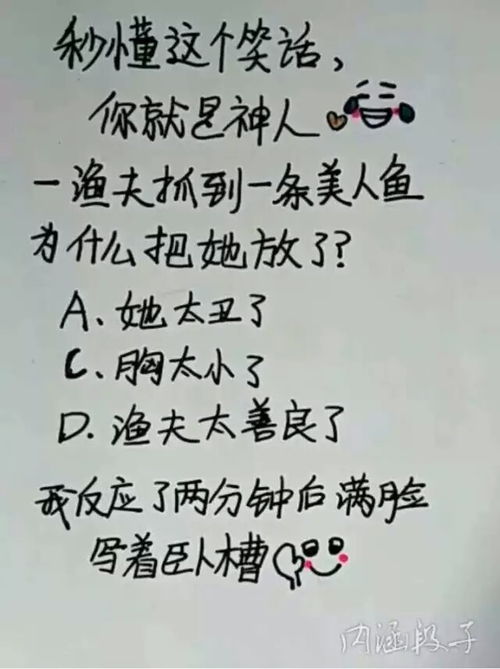 秒懂这个笑话,
你就是神人
一渔夫抓到一条美人鱼
为什么把她放了?
A、她太丑了
C、胸太小了
D. 渔夫太善良了
我反应了两分钟后满脸
写着卧槽
内涵段子